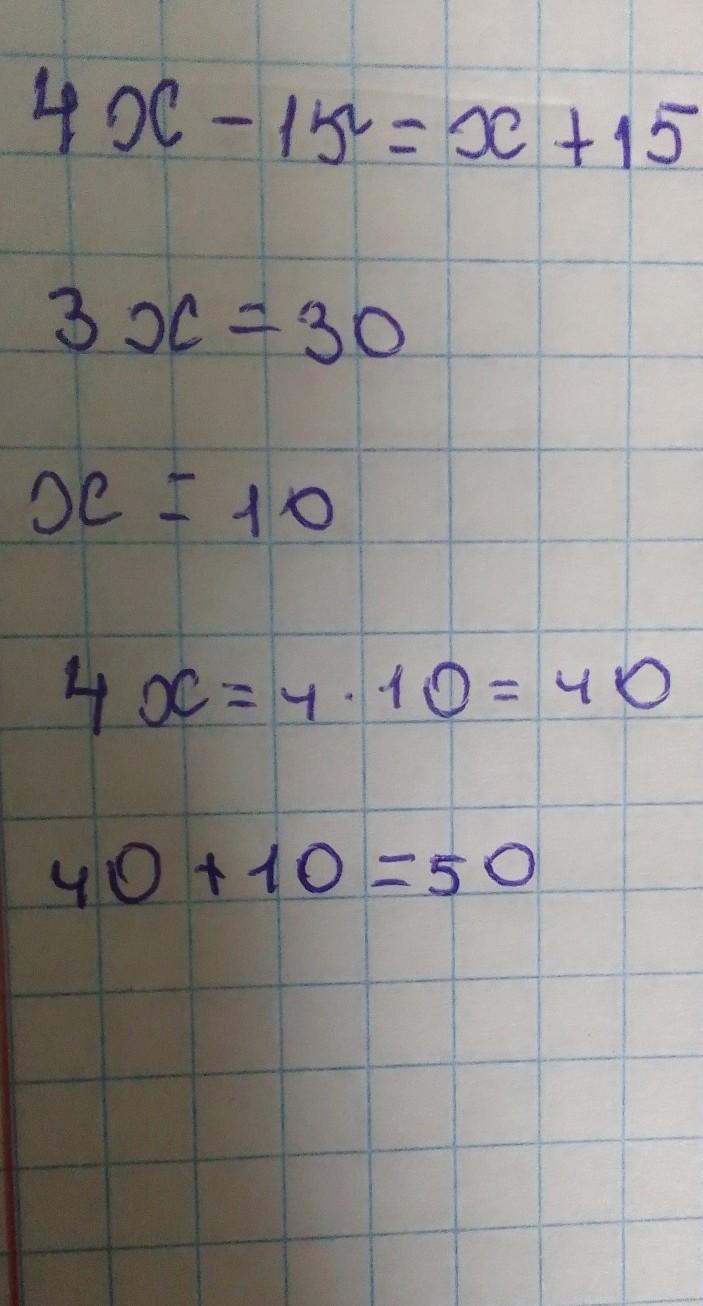 4x - 15 = x + 15
3x = 30
x = 10
4x = 4 · 10 = 40
40 + 10 = 50